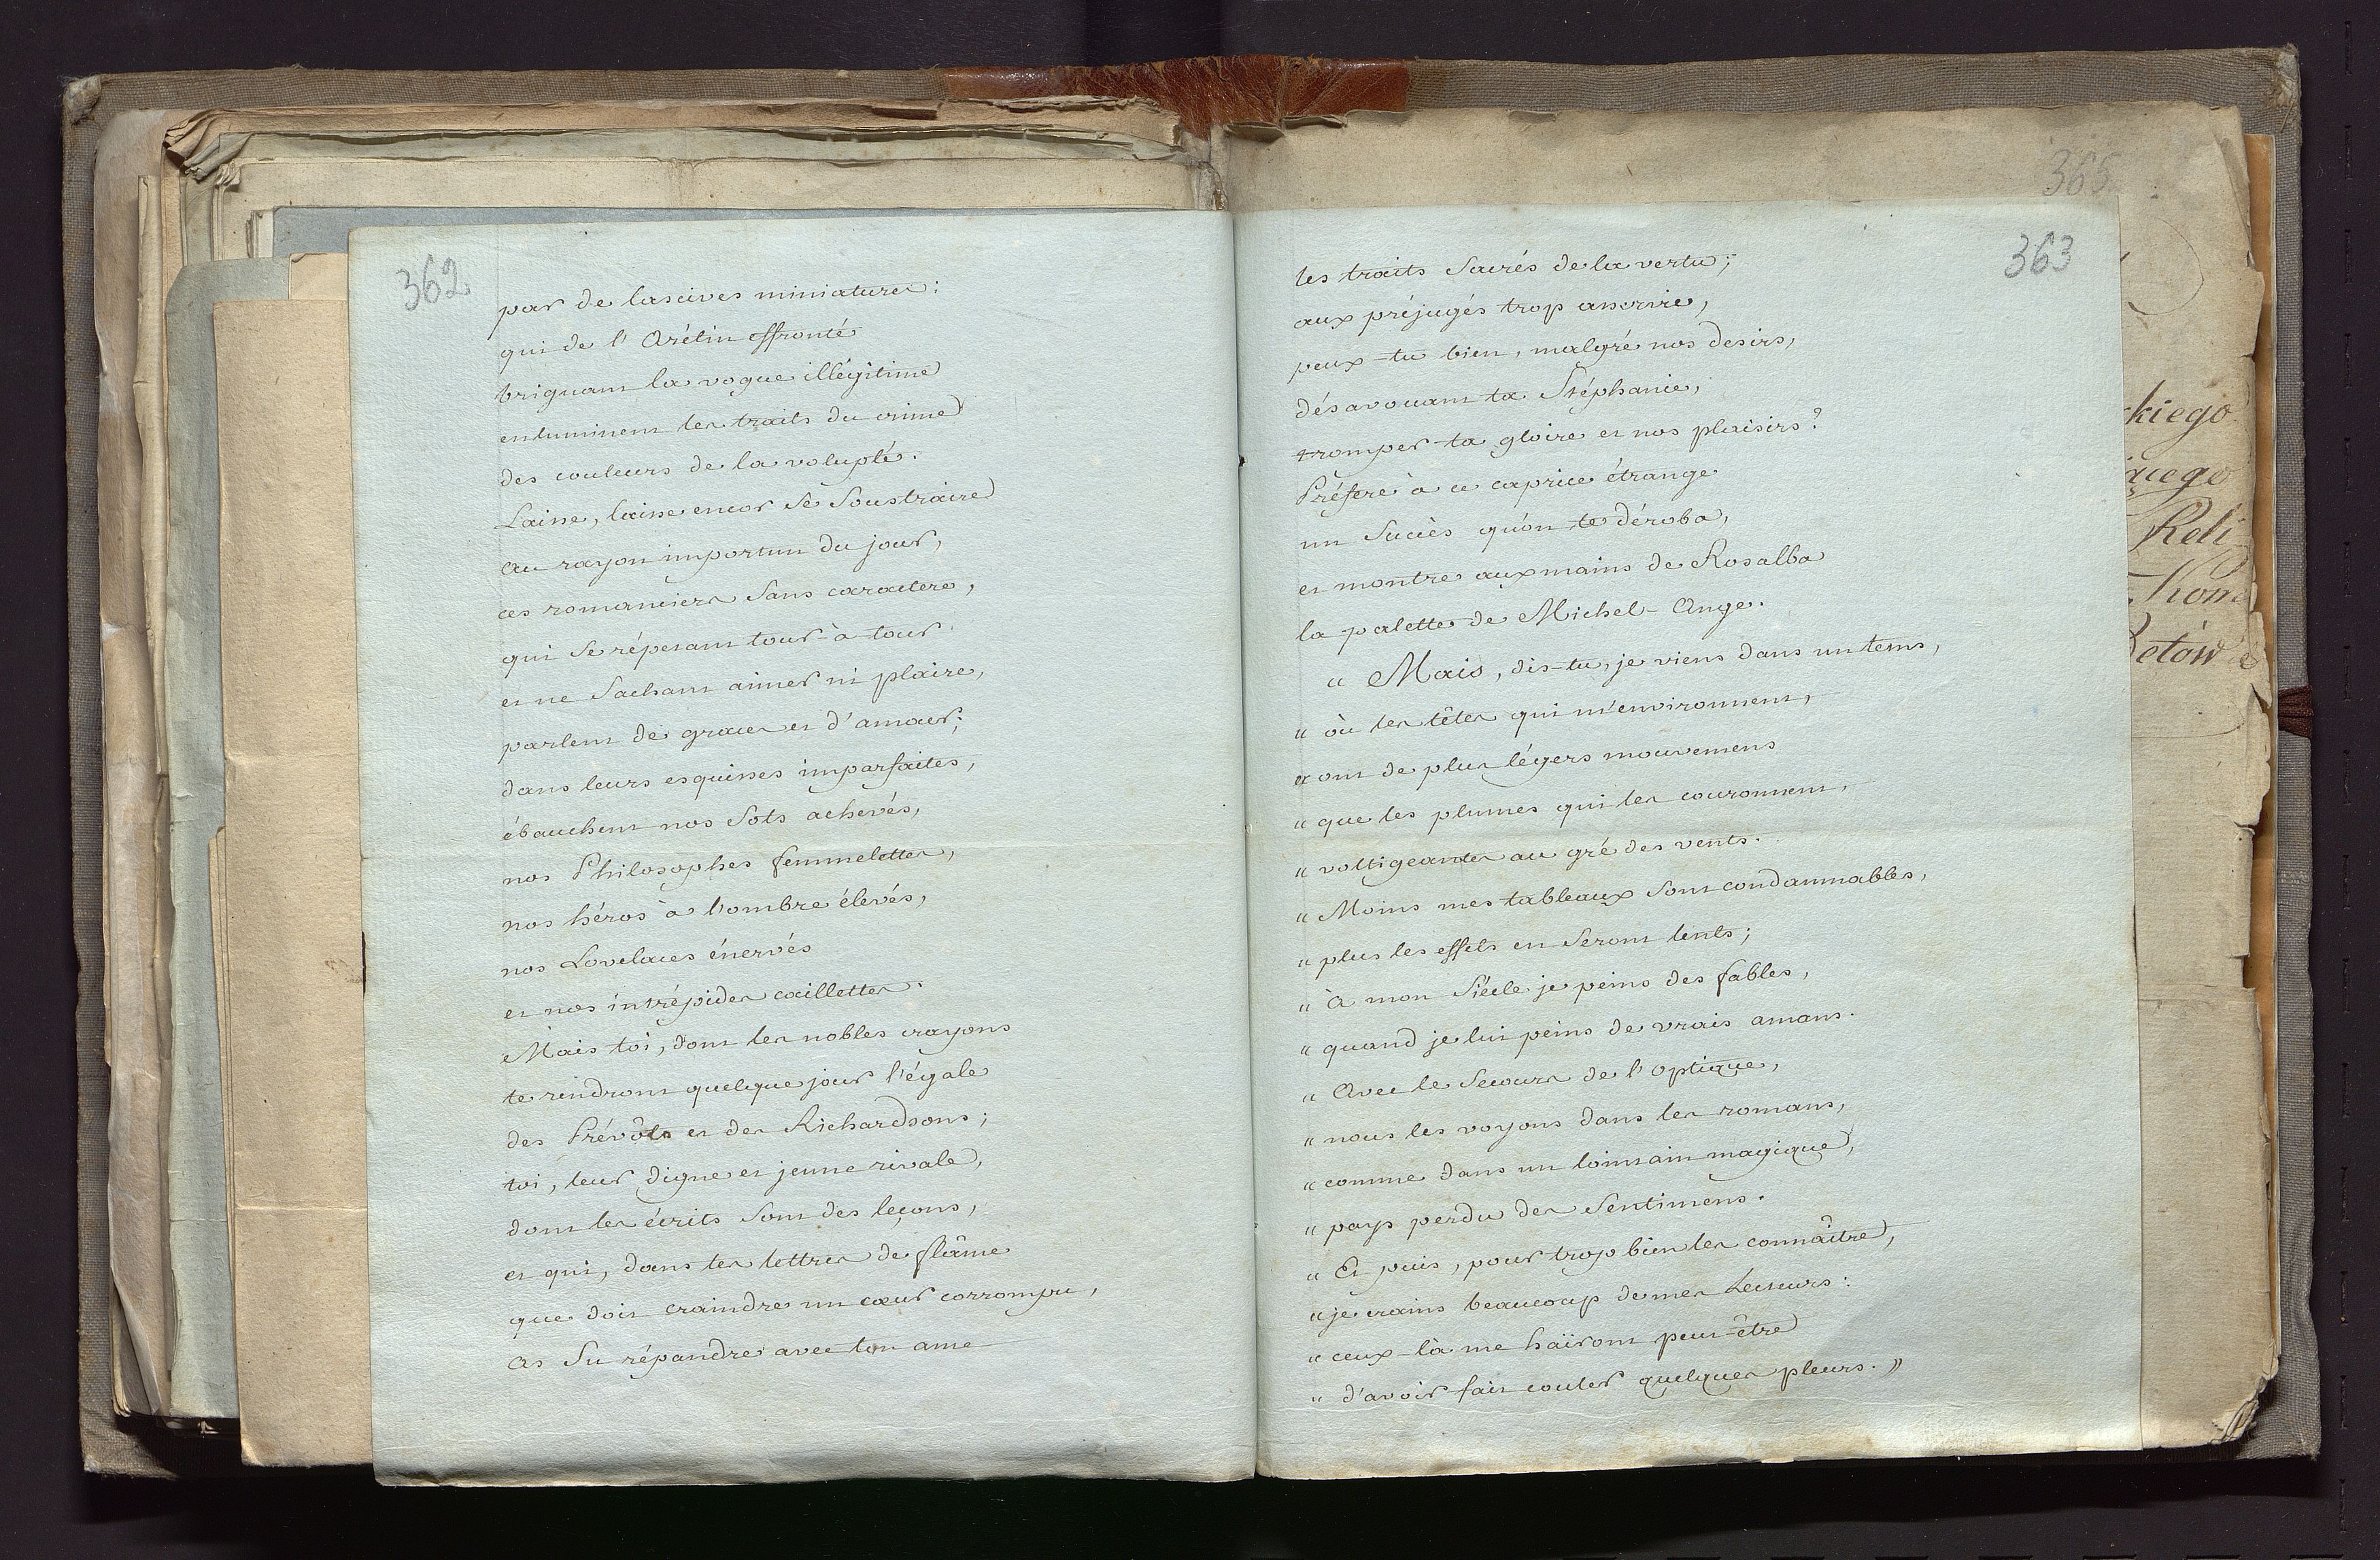 362
par de lascives miniatures:
qui de l'Arétin effronté
briguant la vogue illégitime
enluminent les traits du crime
des couleurs de la volupté.
Laisse, laisse encor se soustraire
au rayon importun du jour,
ces romanciers sans caractere,
qui se répétant tour-à-tour
et ne sachant aimer ni plaire,
parlent de graces et d'amour;
dans leurs esquisses imparfaites,
ébauchent nos sots achevés,
nos Philosophes femmelettes,
nos héros à l'ombre élevés,
nos Lovelaces énervés
et nos intrépides caillettes.
Mais toi, dont les nobles crayons
te rendront quelque jour l'égale
des Prévôts et des Richardsons;
toi, leur digne et jeune rivale,
dont les écrits sont des leçons,
et qui, dans tes lettres de flâme
que doit craindre un cœur corrompu,
as su répandre avec ton ame
365
363
les traits sacrés de la vertu;
aux préjugés trop asservie,
peux-tu bien, malgré nos desirs,
désavouant ta Stéphanie,
tromper ta gloire et nos plaisirs?
Préfere à ce caprice étrange
un succès qu'on te déroba,
et montre aux mains de Rosalba
la palette de Michel-Ange.
" Mais, dis-tu, je viens dans un tems,
" où les têtes qui m'environnent,
" ont de plus légers mouvemens
" que les plumes qui les couronnent,
" voltigeantes au gré des vents.
" Moins mes tableaux sont condamnables,
" plus les effets en seront lents;
" à mon siécle je peins des fables,
" quand je lui peins de vrais amans.
" Avec le secours de l'optique,
" nous les voyons dans les romans,
" comme dans un lointain magique,
" pays perdu des sentimens.
" Et puis, pour trop bien les connaître,
" je crains beaucoup de mes Lecteurs:
" ceux-là me haïront peut-être
" d'avoir fait couler quelques pleurs. "
kiego
Reli
etów